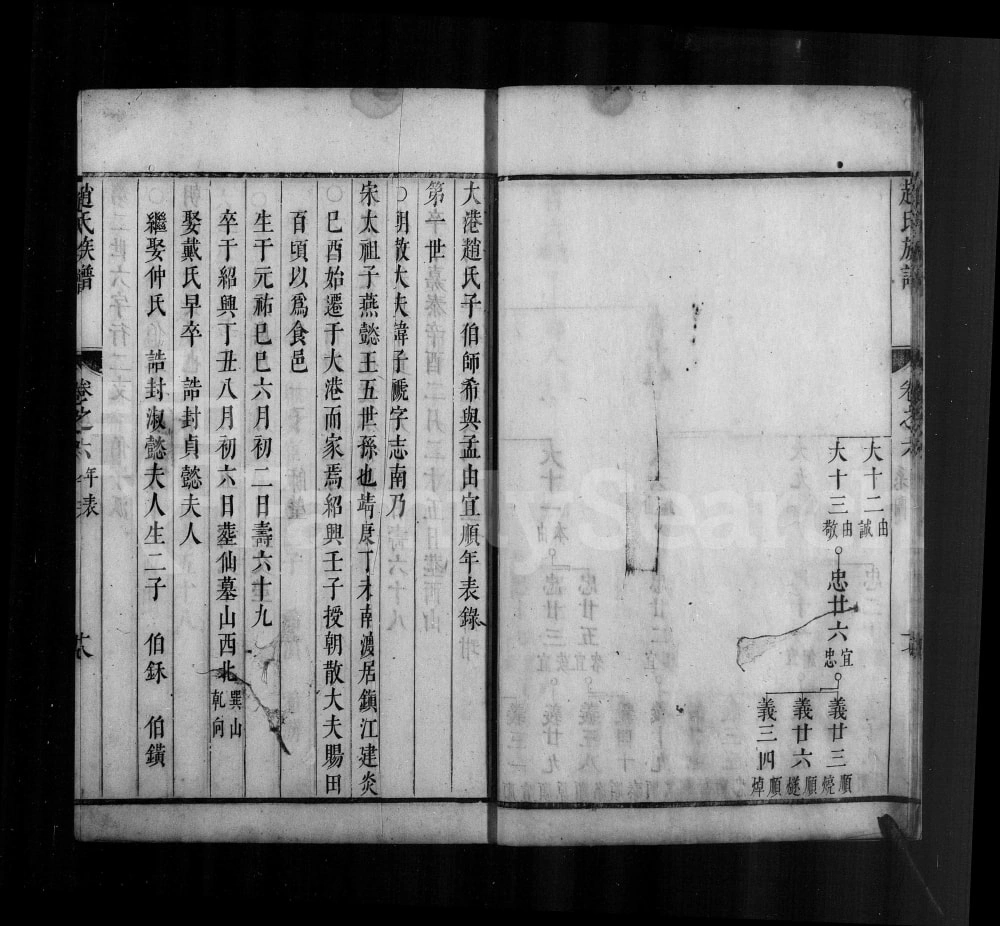 趙氏族譜
卷之六
大十二 由誠
大十三 由敬
忠廿六 宜忠
義廿三 順燒
義廿六 順燧
義三四 順焯
大港趙氏子伯師希與孟由宜順年表錄
第一世
○朝散大夫諱子褫字志南乃
宋太祖子燕懿王五世孫也靖康丁未南渡居鎮江建炎
○巳酉始遷于大港而家焉紹興壬子授朝散大夫賜田
百頃以爲食邑
生于元祐巳巳六月初二日壽六十九
卒于紹興丁丑八月初六日塟仙墓山西北 巽山乾向
娶戴氏早卒 誥封貞懿夫人
○繼娶仲氏 誥封淑懿夫人生二子 伯鉌 伯鐄
趙氏族譜
卷之六 年表
FamilySearch